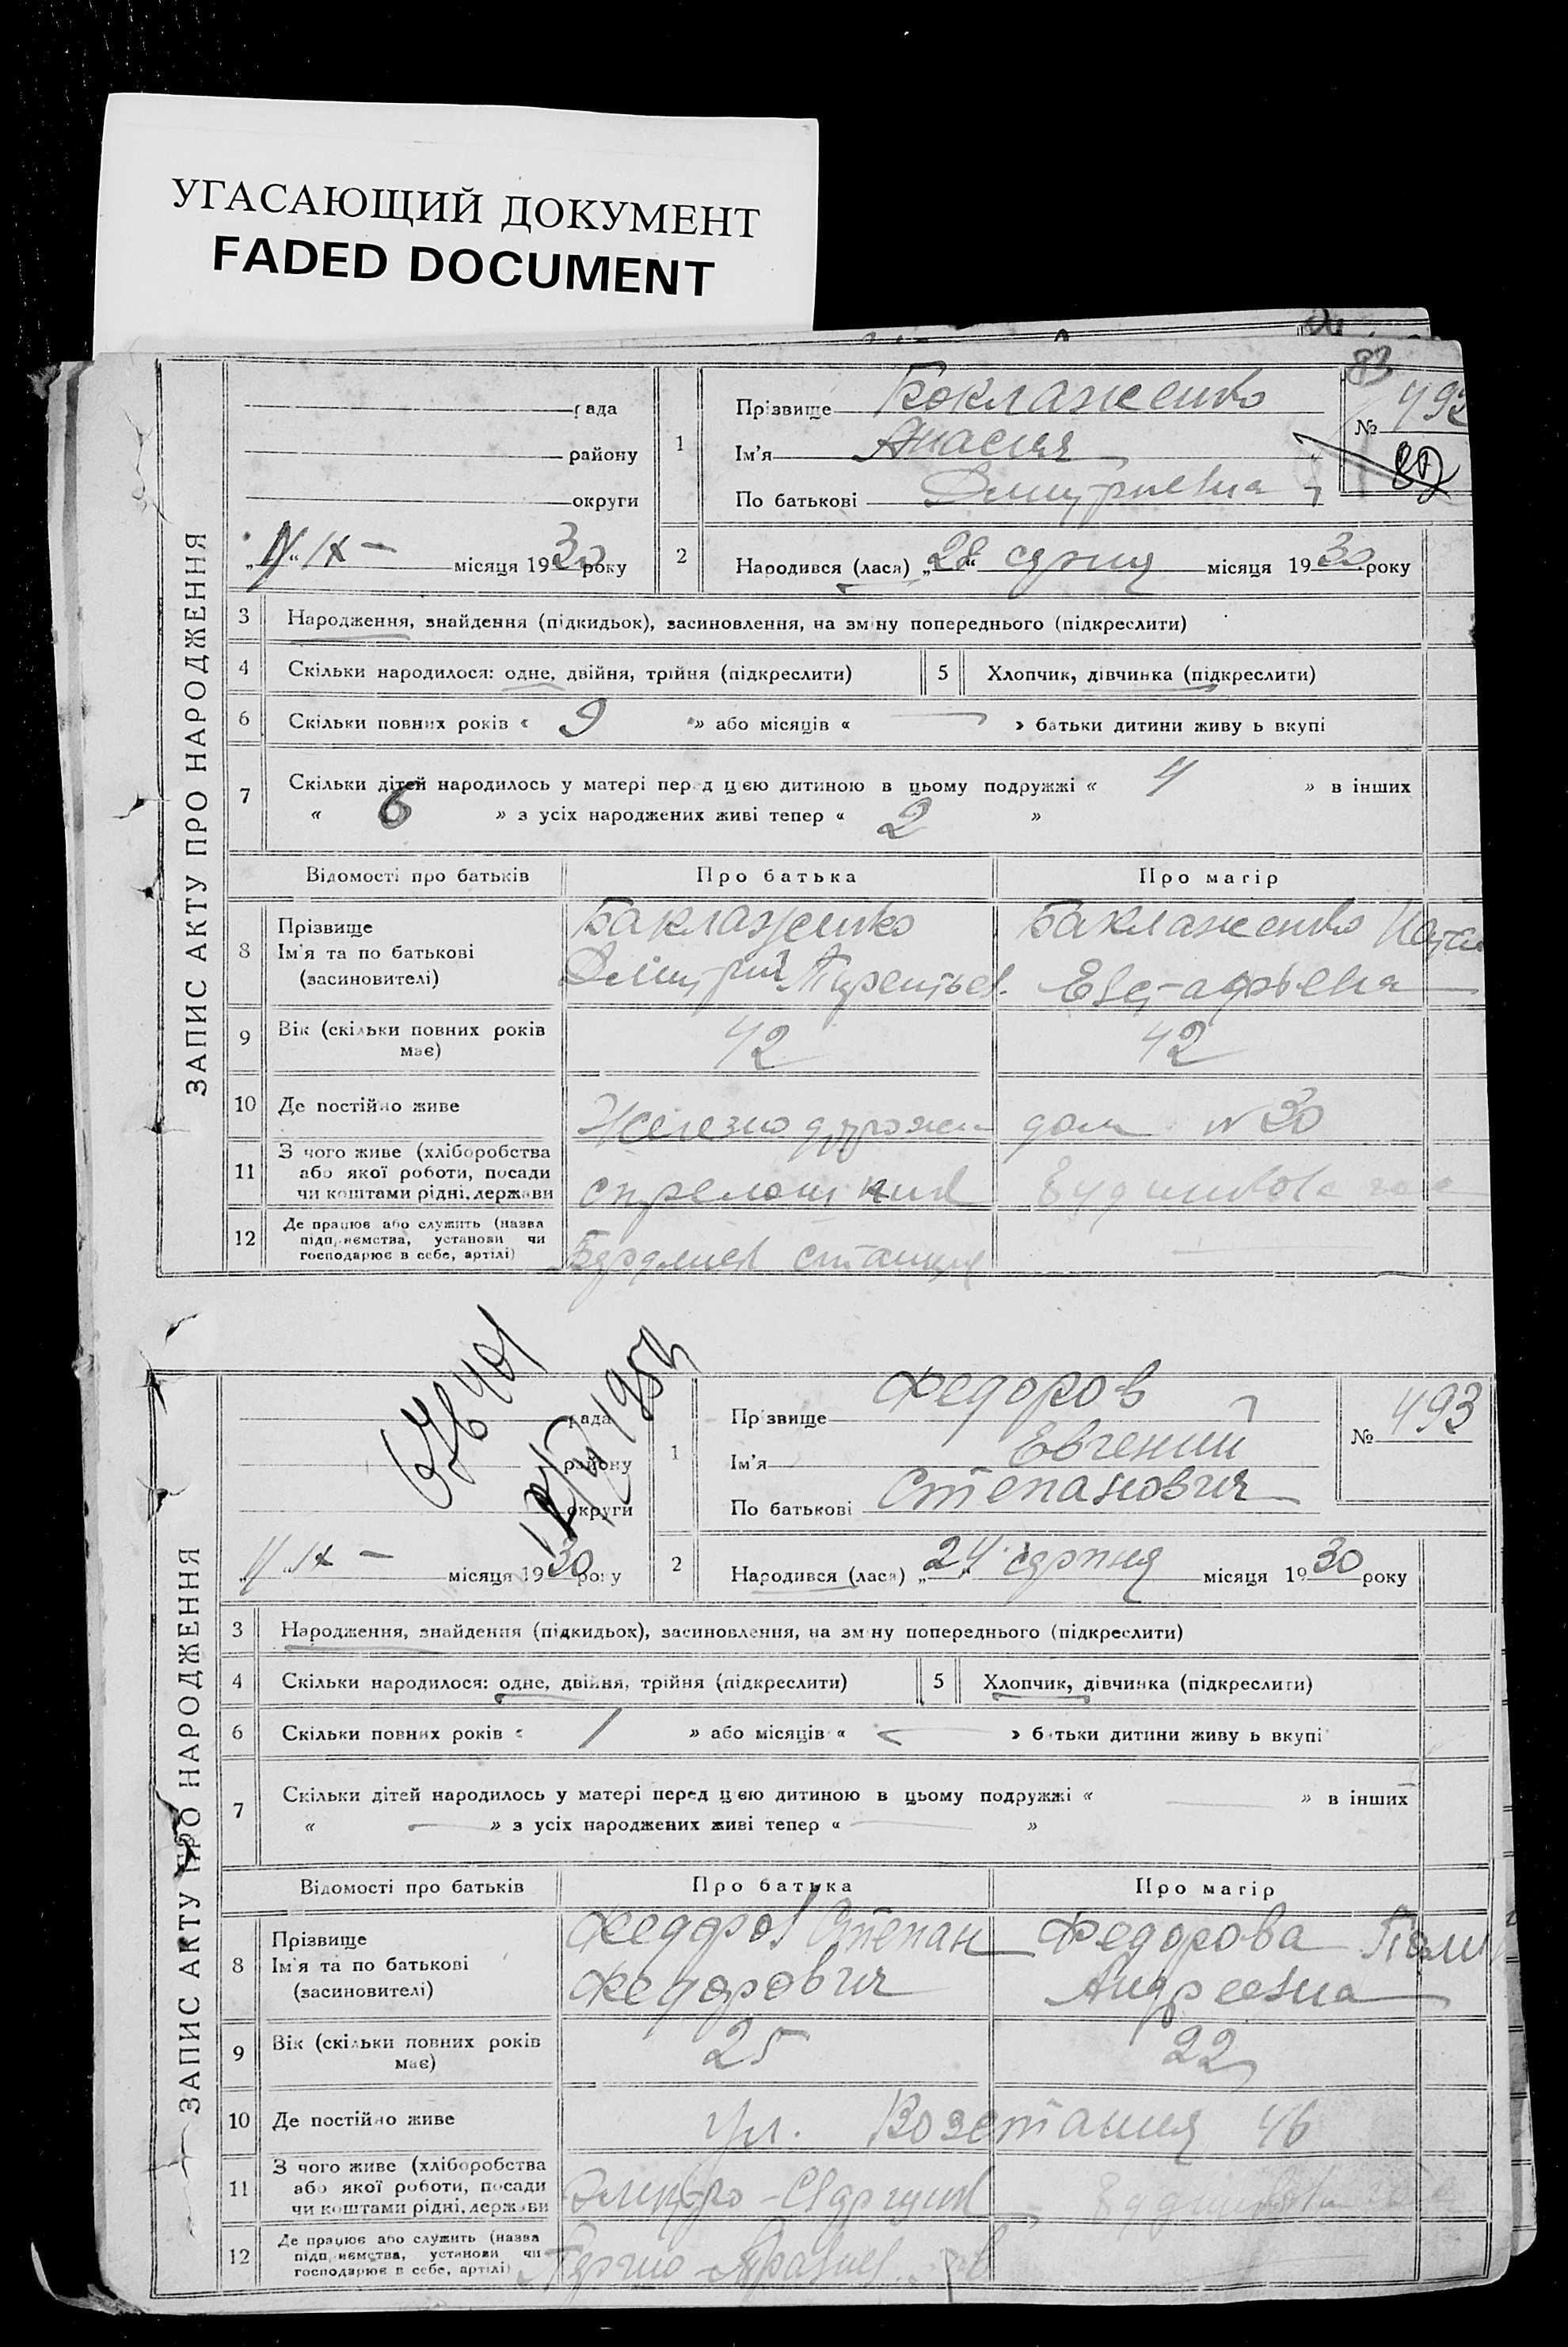 УГАСАЮЩИЙ ДОКУМЕНТ
FADED DOCUMENT
ЗАПИС АКТУ ПРО НАРОДЖЕННЯ
рада
району
округи
IX — місяця 1930 року
1
Прізвище Баклаженко
Ім'я
По батькові
83
№ 492
2
Народився (лася) „28“ серпня місяця 1930 року
3 Народження, знайдення (підкидьок), засиновлення, на зміну попереднього (підкреслити)
4 Скільки народилося: одне, двійня, трійня (підкреслити) 5 Хлопчик, дівчинка (підкреслити)
6 Скільки повних років « 9 » або місяців « — » батьки дитини живуть вкупі
7 Скільки дітей народилось у матері перед цією дитиною в цьому подружжі « 4 » в інших
« 6 » з усіх народжених живі тепер « 2 »
Відомості про батьків Про батька Про матір
8 Прізвище Ім'я та по батькові (засиновителі)
Баклаженко Дмитрий
Баклаженко
9 Вік (скільки повних років має) 42 42
10 Де постійно живе Железно дорожн дом № 30
11 З чого живе (хліборобства або якої роботи, посади чи коштами рідні, держави
12 Де працює або служить (назва підприємства, установи чи господарює в себе, артілі)
станция
ЗАПИС АКТУ ПРО НАРОДЖЕННЯ
рада
району
округи
IX — місяця 1930 року
1
Прізвище Федоров
Ім'я Евгений
По батькові Степанович
№ 493
2
Народився (лася) „24“ серпня місяця 1930 року
3 Народження, знайдення (підкидьок), засиновлення, на зміну попереднього (підкреслити)
4 Скільки народилося: одне, двійня, трійня (підкреслити) 5 Хлопчик, дівчинка (підкреслити)
6 Скільки повних років « 1 » або місяців « — » батьки дитини живуть вкупі
7 Скільки дітей народилось у матері перед цією дитиною в цьому подружжі « — » в інших
« — » з усіх народжених живі тепер « — »
Відомості про батьків Про батька Про матір
8 Прізвище Ім'я та по батькові (засиновителі)
Федоров Степан Федорович
Федорова Андреевна
9 Вік (скільки повних років має) 25 22
10 Де постійно живе ул. Возстания 46
11 З чого живе (хліборобства або якої роботи, посади чи коштами рідні, держави
12 Де працює або служить (назва підприємства, установи чи господарює в себе, артілі)